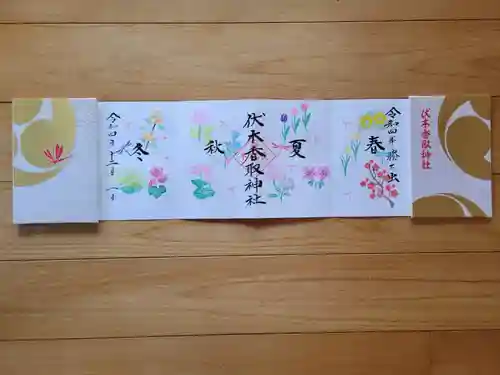 伏木香取神社
令和四年睦月
春
夏
伏木香取神社
秋
冬
令和四年十二月一日